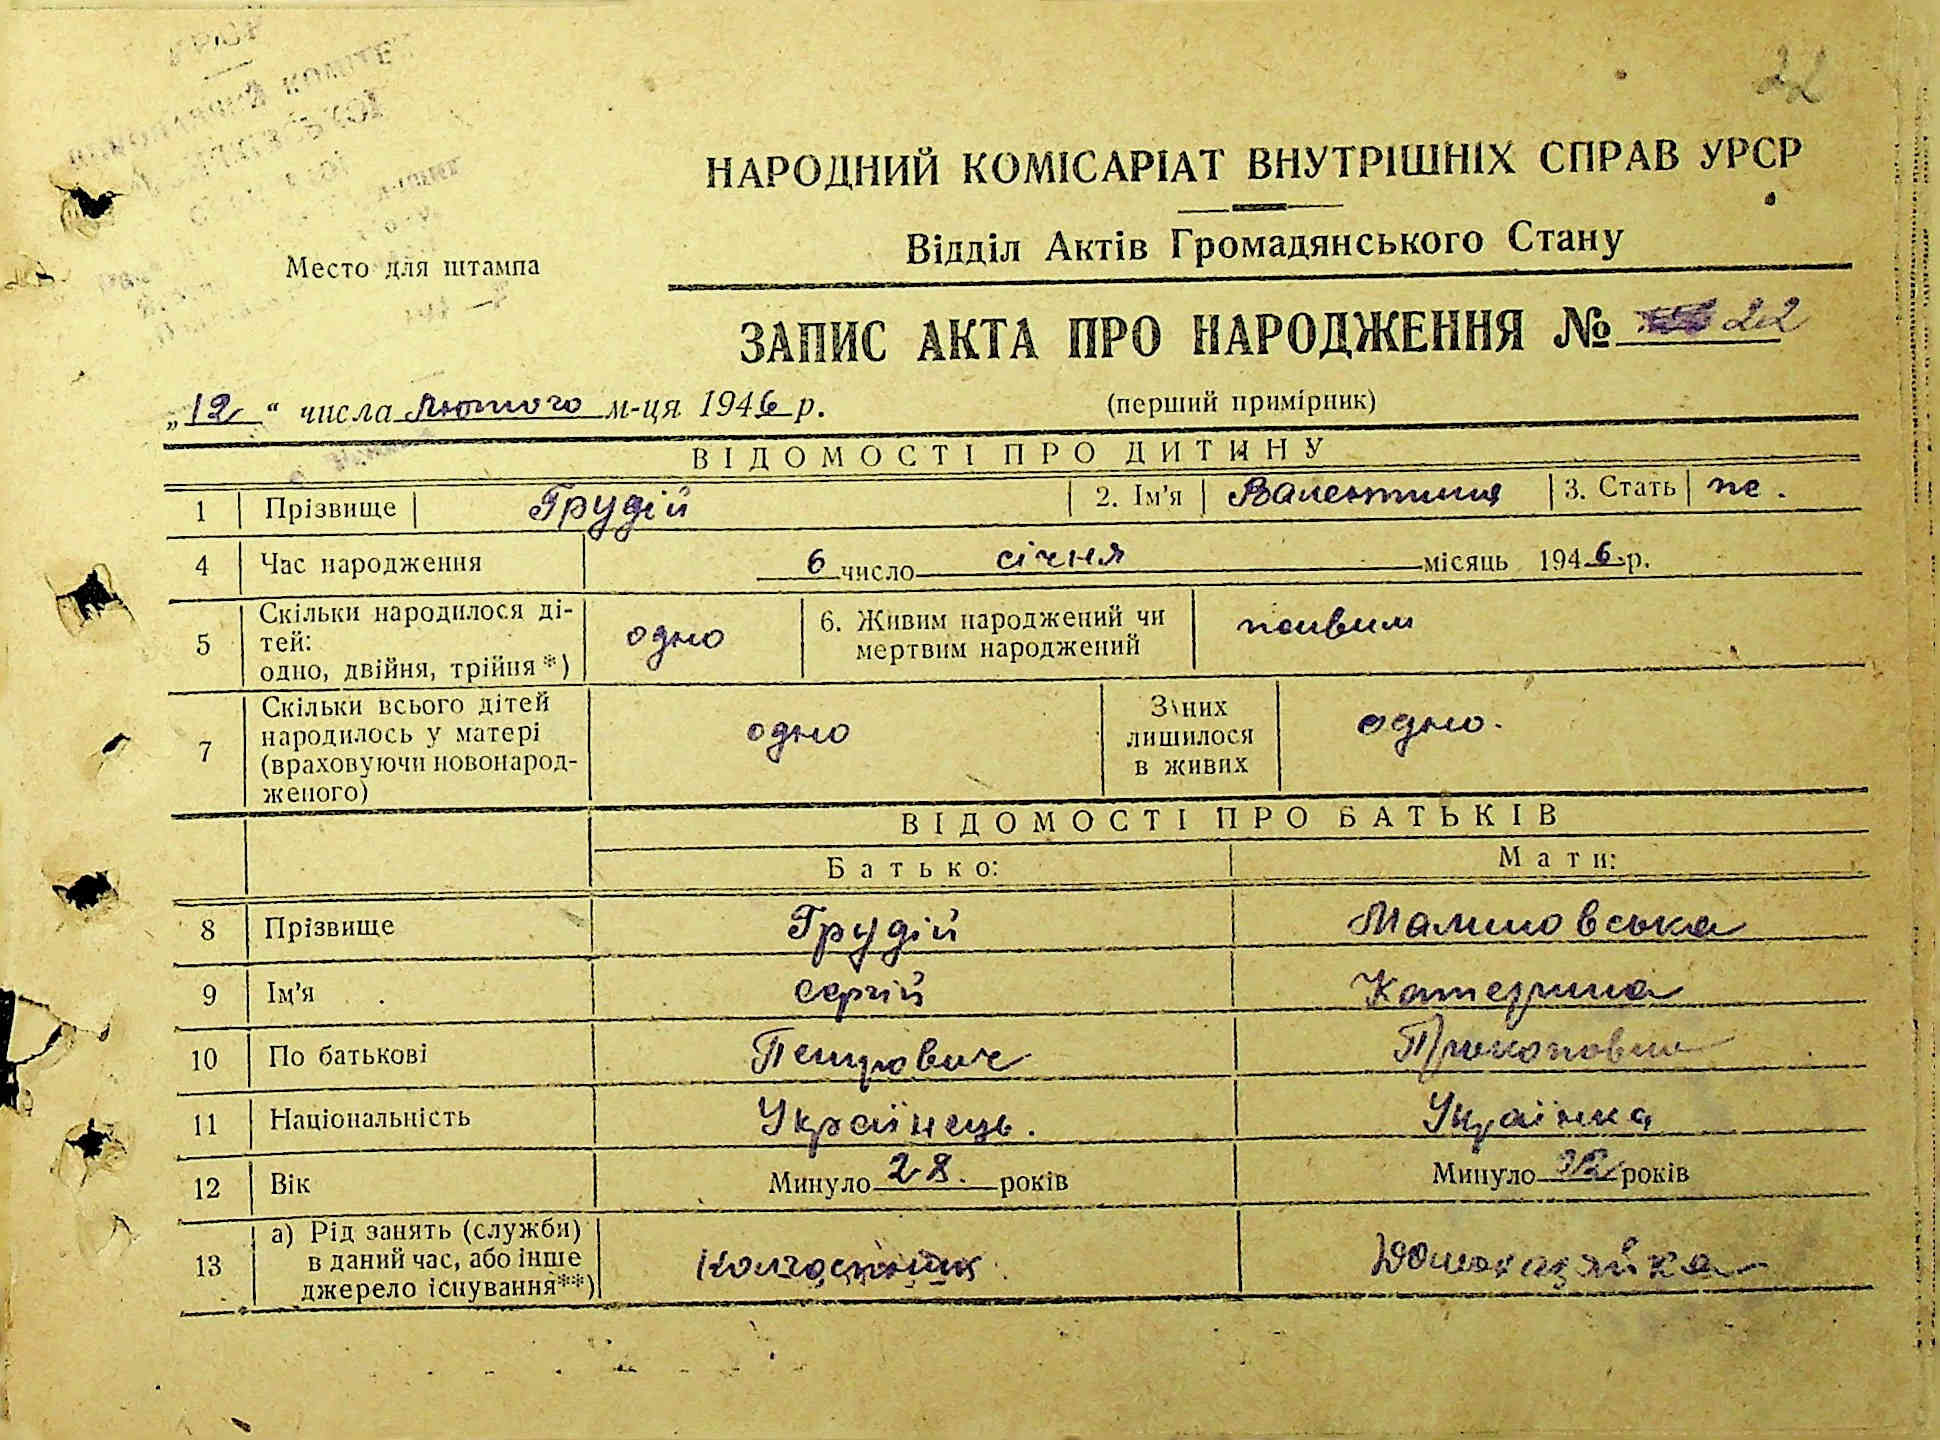 22
НАРОДНИЙ КОМІСАРІАТ ВНУТРІШНІХ СПРАВ УРСР
Відділ Актів Громадянського Стану
Место для штампа
ЗАПИС АКТА ПРО НАРОДЖЕННЯ № 22
„12“ числа лютого м-ця 1946 р. (перший примірник)
ВІДОМОСТІ ПРО ДИТИНУ
1 Прізвище Грудій 2. Ім'я Валентина 3. Стать
4 Час народження 6 число січня місяць 1946 р.
5 Скільки народилося ді-
тей:
одно, двійня, трійня*) одно 6. Живим народжений чи
мертвим народжений
7 Скільки всього дітей
народилось у матері
(враховуючи новонарод-
женого) одно З них
лишилося
в живих одно.
ВІДОМОСТІ ПРО БАТЬКІВ
Батько: Мати:
8 Прізвище Грудій Малиновська
9 Ім'я Сергій Катерина
10 По батькові Петрович Прокоповна
11 Національність Українець. Українка
12 Вік Минуло 28. років Минуло років
13 а) Рід занять (служби)
в даний час, або інше
джерело існування**) Колгоспник Домохазяйка